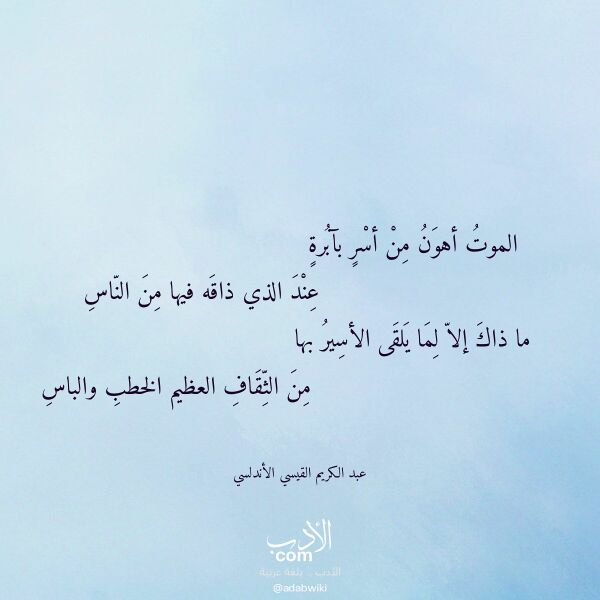 الموتُ أهوَنُ مِنْ أسْرٍ بآبُرةٍ
عِنْدَ الذي ذاقَه فيها مِنَ النّاسِ
ما ذاكَ إلاّ لِمَا يَلقَى الأسِيرُ بها
مِنَ الثِّقَافِ العظيم الخطبِ والباسِ
عبد الكريم القيسي الأندلسي
الأدب
com
الأدب .. بلغة عربية
@adabwiki